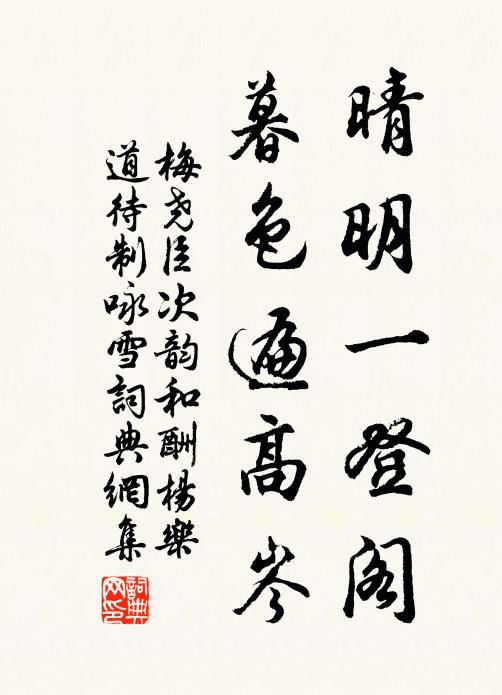 晴明一登阁
暮色遍高岑
梅尧臣次韵和酬楊樂
道待制咏雪詞典網集
詞典网印